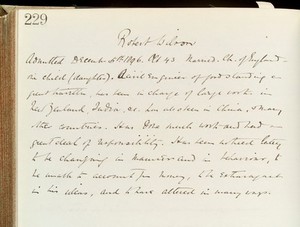 229
Robert Wilson
Admitted December 5th 1896. Æt 43 Married. Ch. of England -
one child (daughter). A Civil Engineer of good standing a
great traveller, has been in charge of large works in
New Zealand, India, &c. has also been in China, & many
other countries. Has done much work and had a
great deal of responsibility. Has been noticed lately
to be changing in manner and in behaviour, to
be unable to account for money, to be extravagant
in his ideas, and to have altered in many ways.